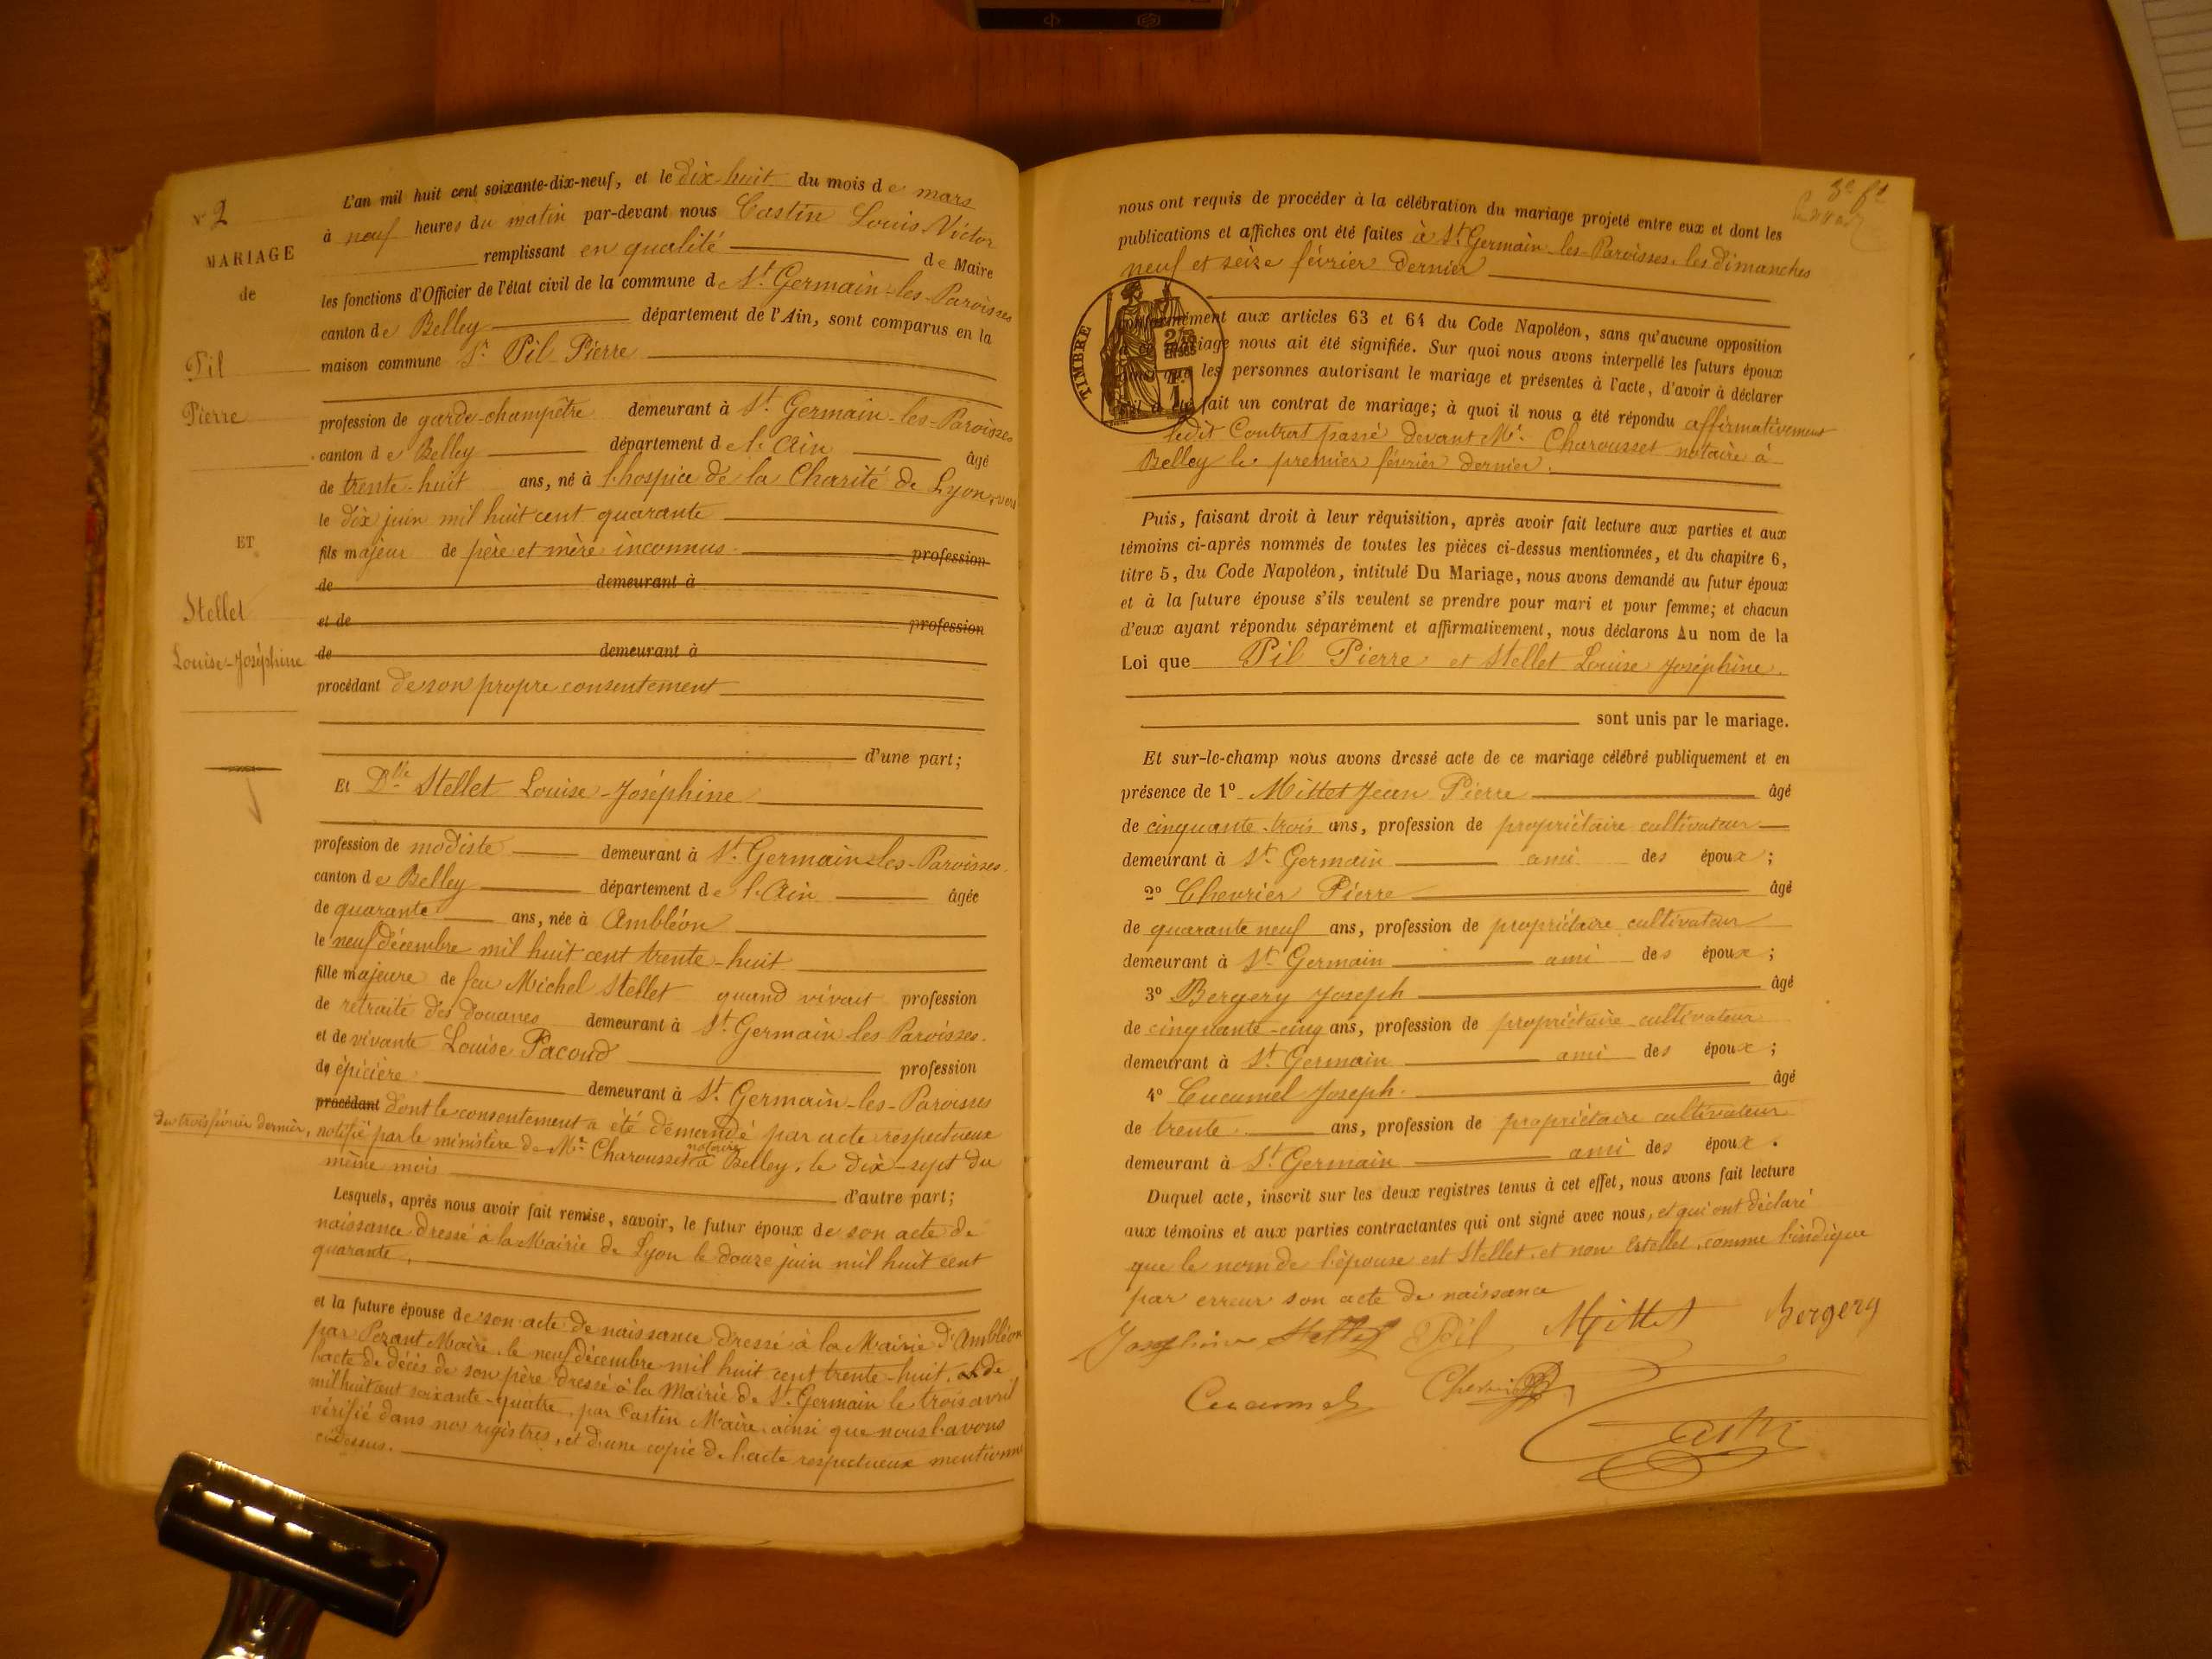 N° 2
MARIAGE
de
Pil
Pierre
ET
Stellet
Louise-Joséphine
L'an mil huit cent soixante-dix-neuf, et le dix-huit du mois de mars
à neuf heures du matin par-devant nous Castin Louis Victor
remplissant en qualité de Maire
les fonctions d'Officier de l'état civil de la commune de St Germain-les-Paroisses
canton de Belley département de l'Ain, sont comparus en la
maison commune Sr Pil Pierre
profession de garde-champêtre demeurant à St Germain-les-Paroisses
canton de Belley département de l'Ain âgé
de trente-huit ans, né à l'hospice de la Charité de Lyon, vers
le dix juin mil huit cent quarante
fils majeur de père et mère inconnus profession
de demeurant à
et de profession
de demeurant à
procédant de son propre consentement
d'une part;
Et Dlle Stellet Louise-Joséphine
profession de modiste demeurant à St Germain-les-Paroisses
canton de Belley département de l'Ain âgée
de quarante ans, née à Ambléon
le neuf décembre mil huit cent trente-huit
fille majeure de feu Michel Stellet quand vivait profession
de retraité des douanes demeurant à St Germain les Paroisses.
et de vivante Louise Pacoud profession
de épicière demeurant à St Germain-les-Paroisses
procédant dont le consentement a été demandé par acte respectueux
du trois février dernier, notifié par le ministère de Me Charousset notaire à Belley, le dix-sept du
même mois
d'autre part;
Lesquels, après nous avoir fait remise, savoir, le futur époux de son acte de
naissance dressé à la Mairie de Lyon le douze juin mil huit cent
quarante,
et la future épouse de son acte de naissance dressé à la Mairie d'Ambléon
par Pezant Maire, le neuf décembre mil huit cent trente-huit, de
l'acte de décès de son père dressé à la Mairie de St Germain le trois avril
mil huit cent soixante-quatre, par Castin Maire, ainsi que nous l'avons
vérifié dans nos registres, et d'une copie de l'acte respectueux mentionné
ci-dessus.
nous ont requis de procéder à la célébration du mariage projeté entre eux et dont les
publications et affiches ont été faites à St Germain-les-Paroisses, les dimanches
neuf et seize février dernier
TIMBRE
2/10 EN SUS
1 F.
conformément aux articles 63 et 64 du Code Napoléon, sans qu'aucune opposition
à ce mariage nous ait été signifiée. Sur quoi nous avons interpellé les futurs époux
ainsi que les personnes autorisant le mariage et présentes à l'acte, d'avoir à déclarer
s'il a été fait un contrat de mariage; à quoi il nous a été répondu affirmativement
ledit Contrat passé devant Me Charousset notaire à
Belley le premier février dernier.
Puis, faisant droit à leur réquisition, après avoir fait lecture aux parties et aux
témoins ci-après nommés de toutes les pièces ci-dessus mentionnées, et du chapitre 6,
titre 5, du Code Napoléon, intitulé Du Mariage, nous avons demandé au futur époux
et à la future épouse s'ils veulent se prendre pour mari et pour femme; et chacun
d'eux ayant répondu séparément et affirmativement, nous déclarons Au nom de la
Loi que Pil Pierre et Stellet Louise Joséphine.
sont unis par le mariage.
Et sur-le-champ nous avons dressé acte de ce mariage célébré publiquement et en
présence de 1° Mittet Jean Pierre âgé
de cinquante-trois ans, profession de propriétaire cultivateur
demeurant à St Germain ami des époux;
2° Chevrier Pierre âgé
de quarante neuf ans, profession de propriétaire cultivateur
demeurant à St Germain ami des époux;
3° Bergery Joseph âgé
de cinquante-cinq ans, profession de propriétaire cultivateur
demeurant à St Germain ami des époux;
4° Cucumel Joseph. âgé
de trente ans, profession de propriétaire cultivateur
demeurant à St Germain ami des époux.
Duquel acte, inscrit sur les deux registres tenus à cet effet, nous avons fait lecture
aux témoins et aux parties contractantes qui ont signé avec nous, et qui ont déclaré
que le nom de l'épouse est Stellet, et non Estellet, comme l'indique
par erreur son acte de naissance
Joséphine Stellet Pil Mittet Bergery
Cucumel Chevrier
Castin